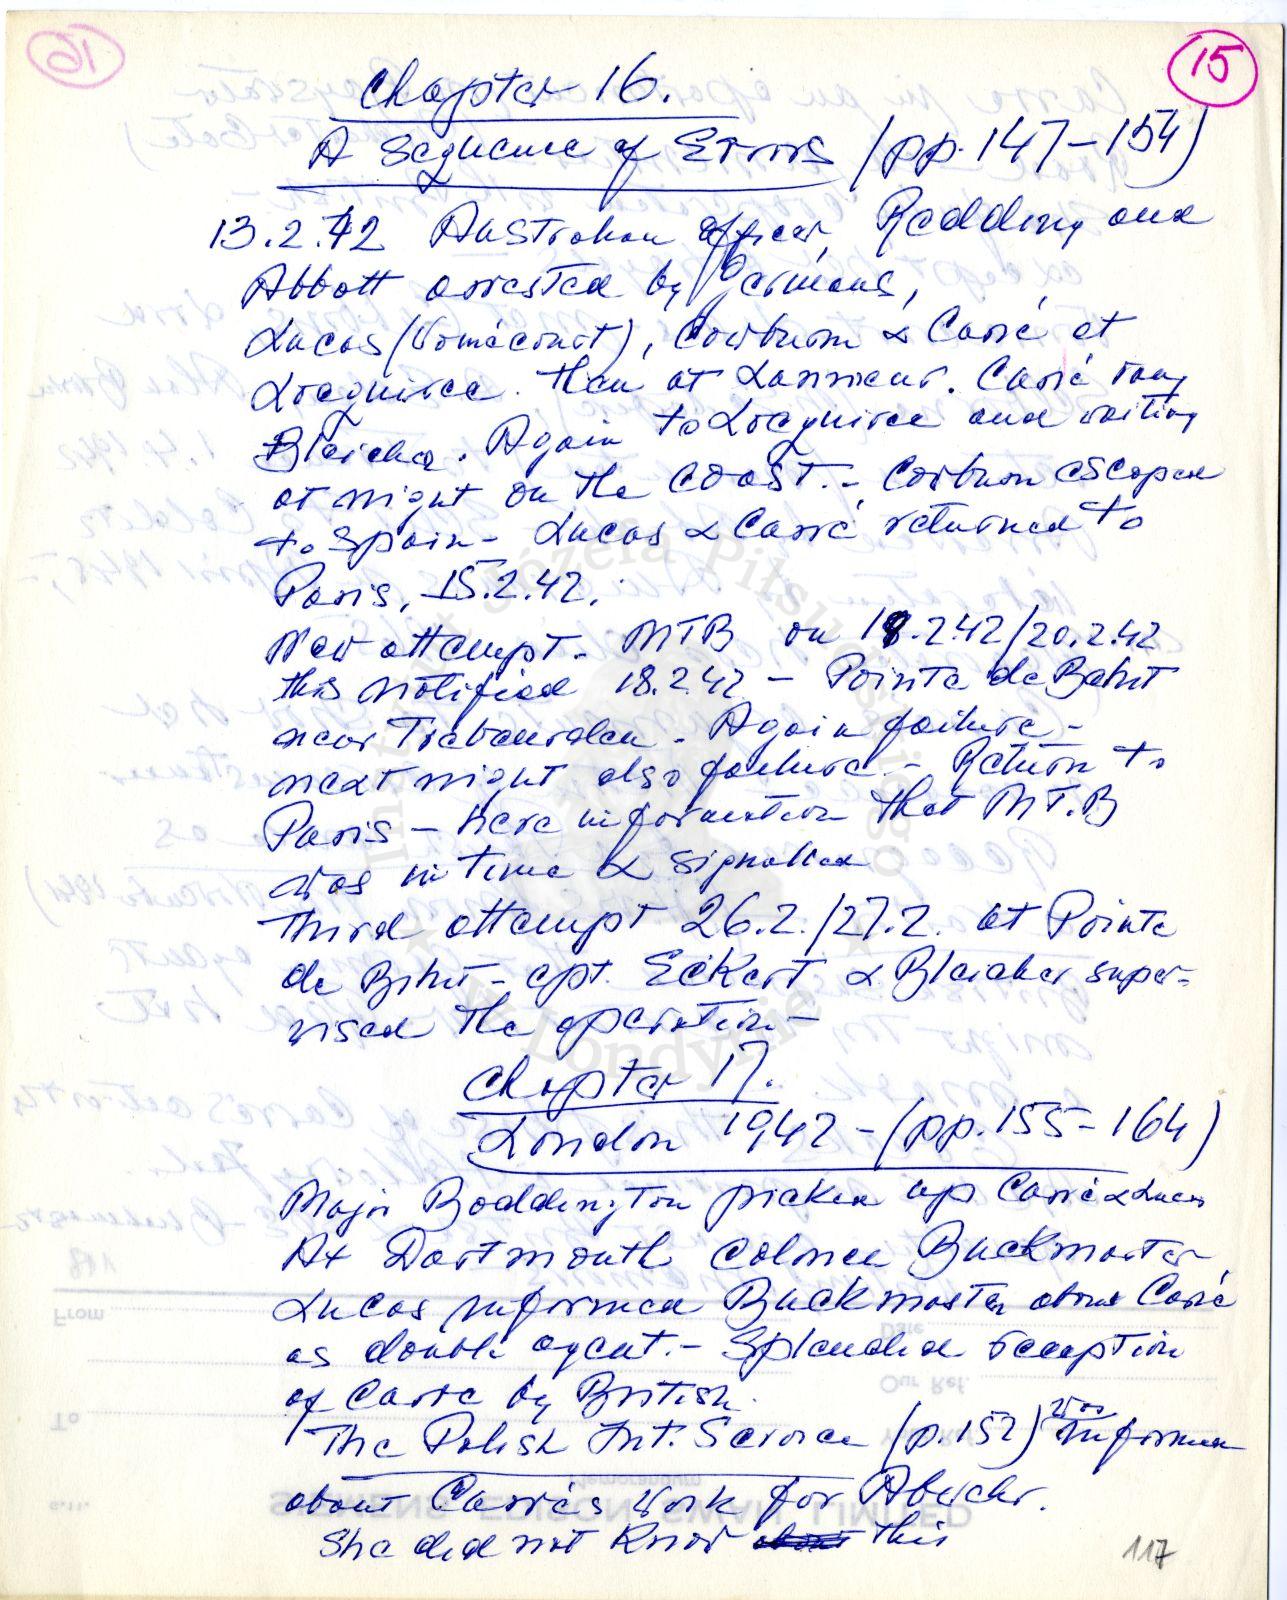 15
Chapter 16.
A Sequence of Errors (pp. 147-154)
13.2.42 Australian officer, Redding and
Abbott arrested by Germans,
Lucas (Vomécourt), Cowburn & Carré at
Locquirec. Then at Lanmeur. Carré rang
Bleicher. Again to Locquirec and waiting
at night on the coast. - Cowburn escaped
to Spain - Lucas & Carré returned to
Paris, 15.2.42.
New attempt - MTB on 19.2.42/20.2.42
this notified 18.2.42 - Pointe de Bihit
near Trebeurden. Again failure -
next night also failure - Return to
Paris - here information that MT.B
was in time & signalled
Third attempt 26.2./27.2. at Pointe
de Bihit - cpt. Eckert & Bleicher super-
vised the operation -
Chapter 17.
London 1942 - (pp. 155-164)
Major Boddington picked up Carré & Lucas
At Dartmouth Colonel Buckmaster
Lucas informed Buckmaster about Carré
as double agent. - Splendid reception
of Carré by British.
The Polish Int. Service (p. 152) was informed
about Carré's work for Abwehr.
She did not know this
117
Instytut Józefa Piłsudskiego
w Londynie